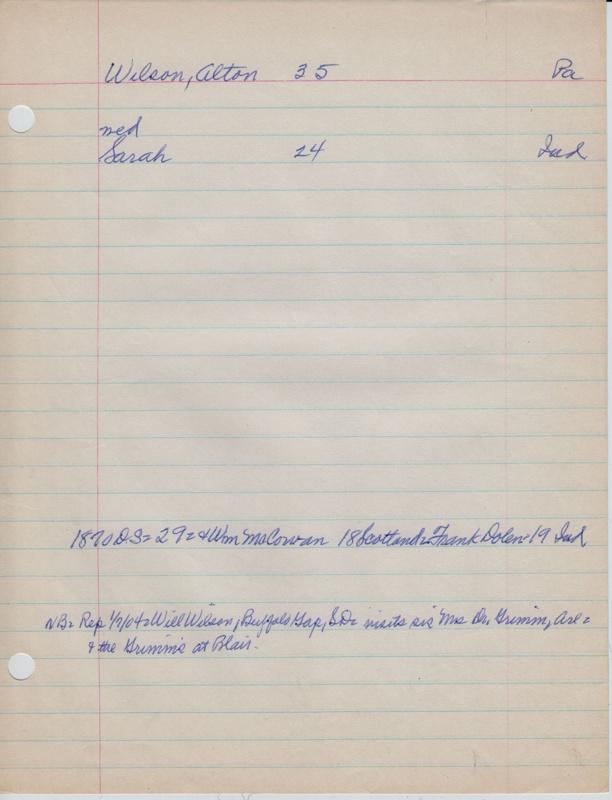 Wilson, Alton 35 Pa
med
Sarah 24 Ind
1870 D.S= 29= & Wm McCowan 18 Scotland= Frank Dolen= 19 Ind
NB= Rep 1/7/04= Will Wilson, Buffalo Gap, S.D= visits sis Mrs Dr. Grimm, Arl=
& the Grimms at Blair.